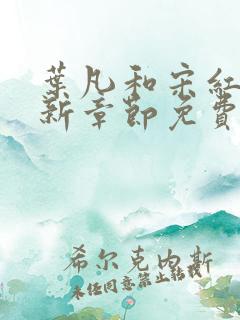 葉凡和宋紅
新章節免費
希尔克内斯
未经同意禁止转载